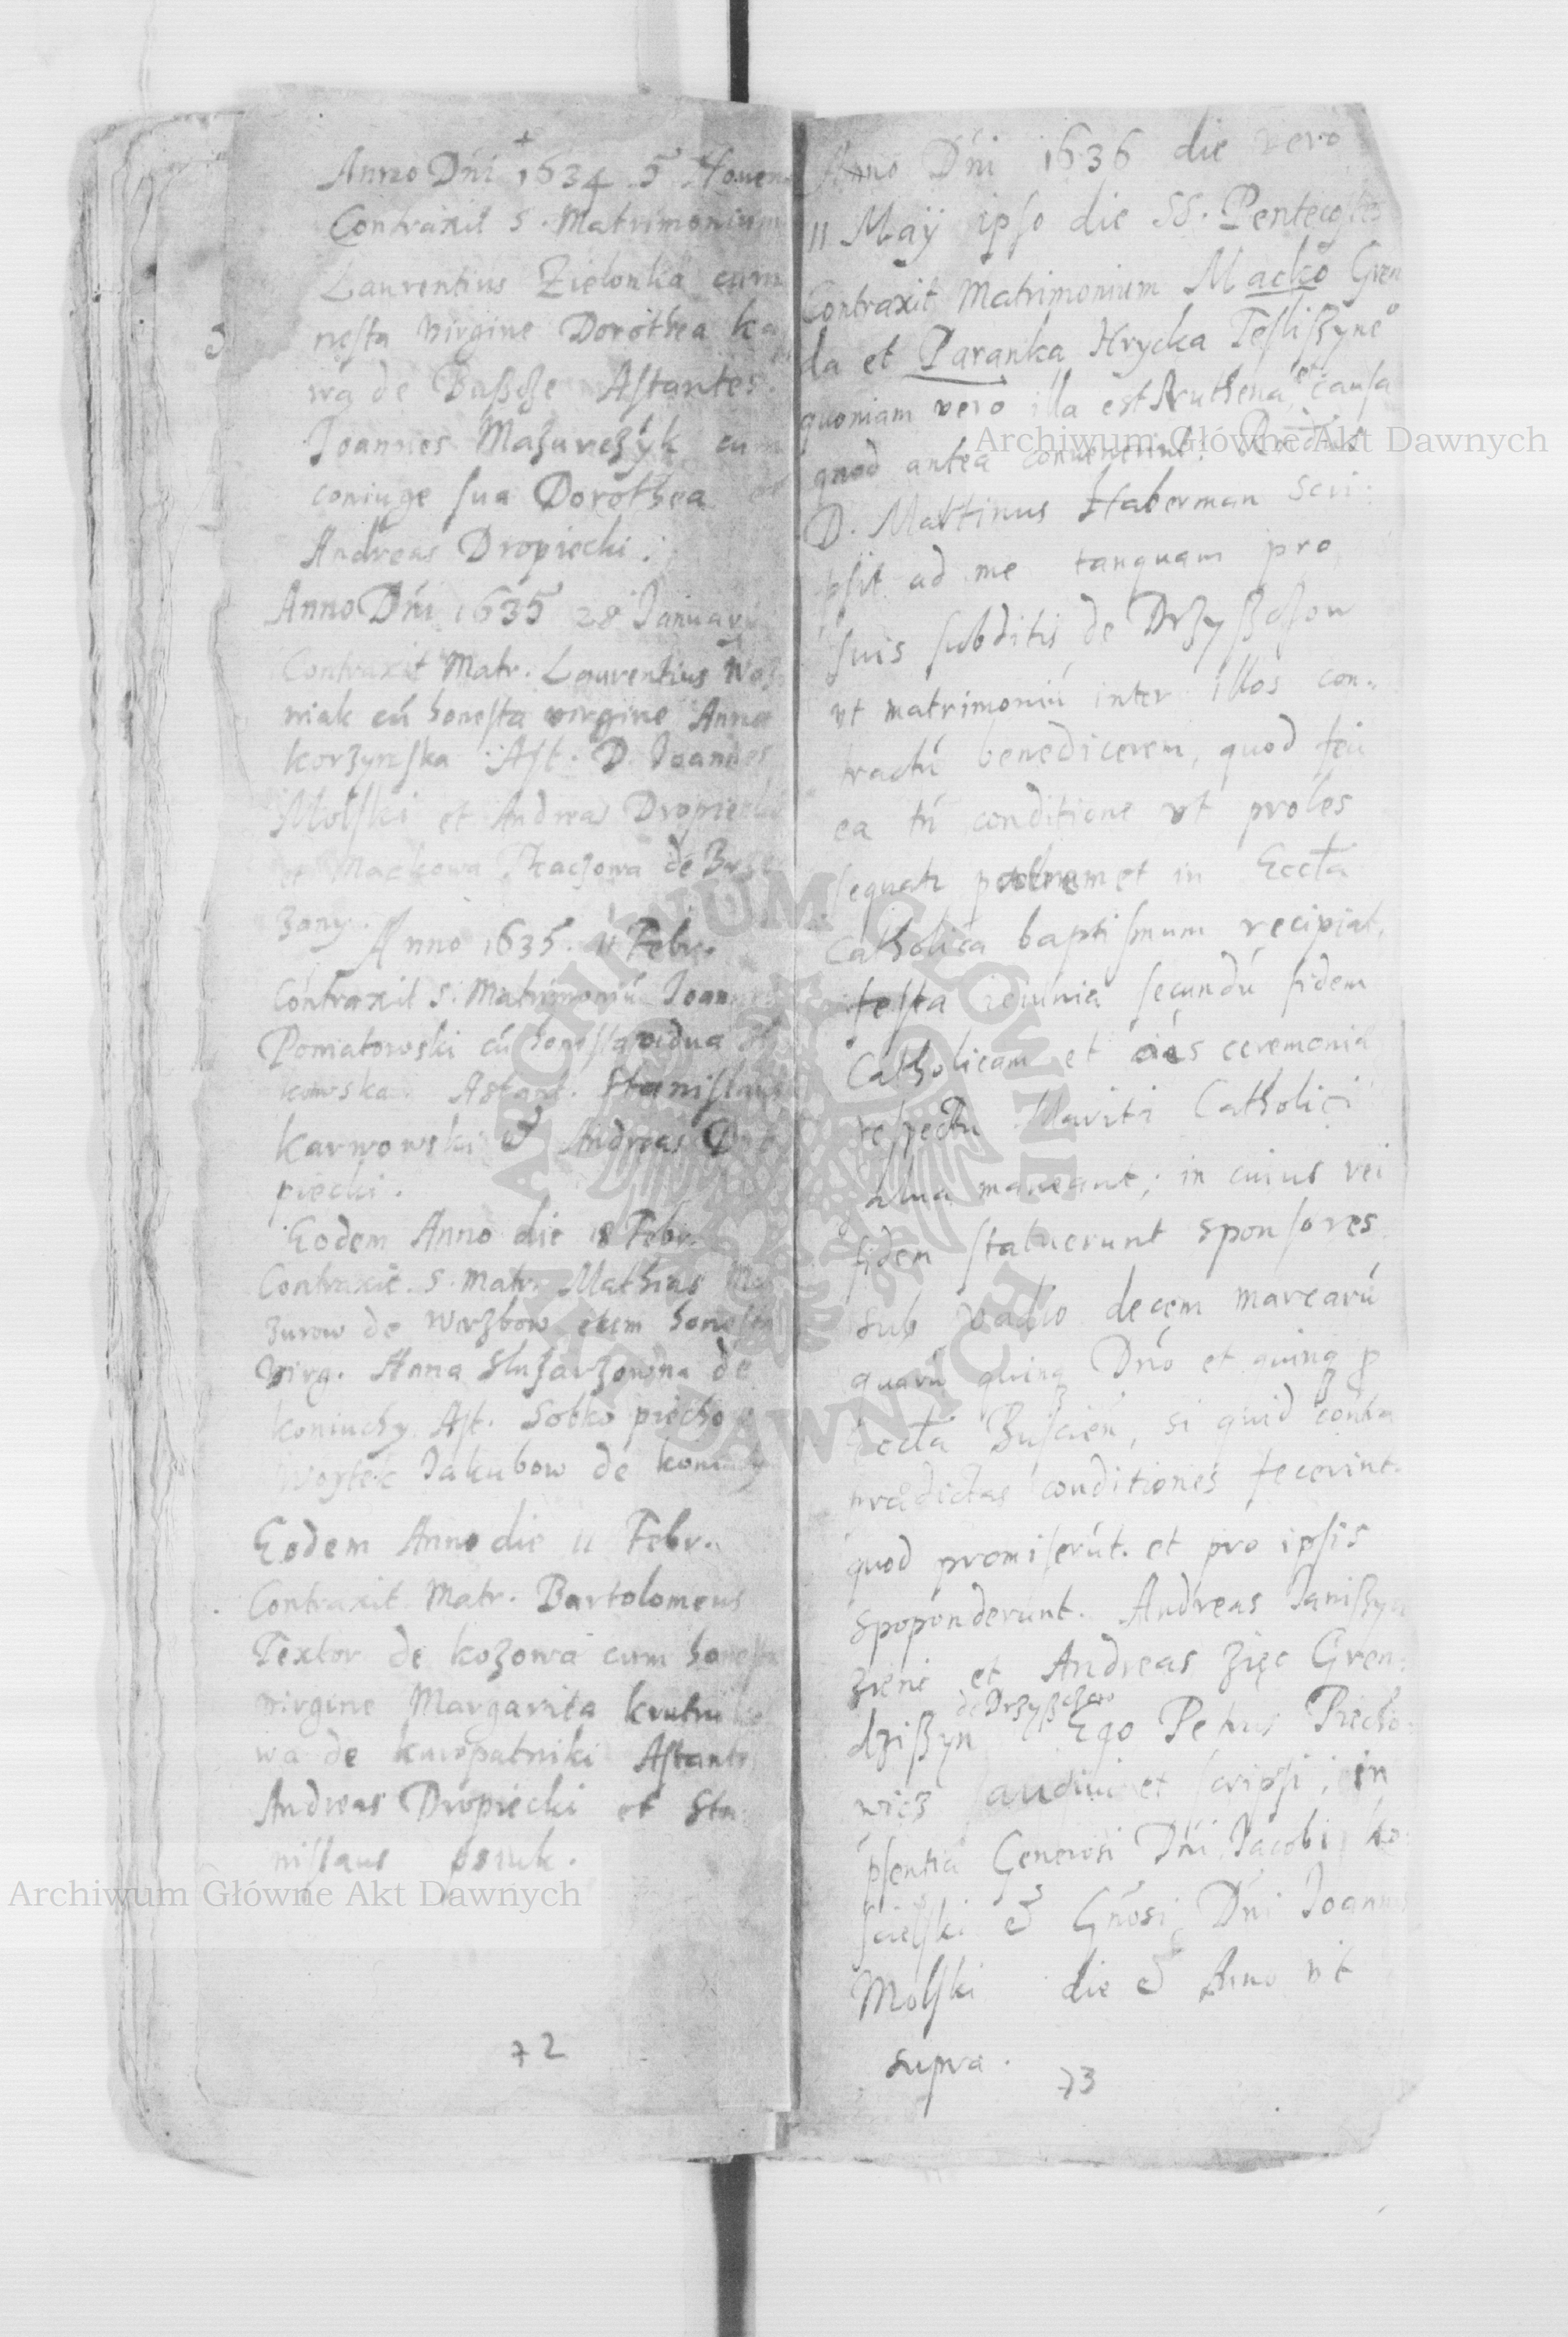 Anno Dńi 1634 5 Nouem
Contraxit S. Matrimonium
Laurentius Zielonka cum
nesta virgine Dorothea Ka
wa de Bußcze Astantes
Joannes Mazurczyk cum
coniuge sua Dorothea et
Andreas Dropiecki.
Anno Dńi 1635 28 Januar
Contraxit Matr. Laurentius Woz
niak cú honesta virgine Anna
Korzynska Ast. D. Joannes
Molski et Andreas Dropiecki
et Mackowa Tkaczowa de
zany.
Anno 1635. 11 Febr.
Contraxit S. Matrimoniú Joannes
Poniatowski cú honesta vidua
kowska Astant. Stanislaus
Karwowski & Andreas Dro
piecki.
Eodem Anno die 18 Febr.
Contraxit S. Matr. Mathias Ma
zurow de Wierzbow cum honesta
virg. Anna Sluzarzowna de
Koniuchy Ast. Sobko piecho
Woytek Jakubow de Koniuchy
Eodem Anno die 11 Febr.
Contraxit Matr. Bartolomeus
Textor de Kozowa cum honesta
virgine Margarita
wa de Kuropatniki Astantes
Andreas Dropiecki et Sta:
nislaus
72
Anno Dńi 1636 die vero
11 Maÿ ipso die SS. Pentecostes
Contraxit Matrimonium Macko Gren
da et Paranka Hrycka Teslißyne
quoniam vero illa est Ruthena, et causa
quod antea conuenerint.
D. Martinus Haberman Scri:
psit ad me tanquam pro
suis subditis de Drzyßczow
vt matrimoniú inter illos con-
tractú benedicerem, quod feci
ea tń conditione vt proles
sequatr patrem et in Eccła
Catholica baptismum recipiat,
festa ieiunia secundú fidem
Catholicam et ceremonia
respectu Mariti Catholici
salua maneant; in cuius rei
fidem statuerunt sponsores
sub vadio decem marcarú
quarú quinq Dńo et quinq p
Eccła Buscien, si quid contra
prædictas conditiones fecerint.
quod promiserút. et pro ipsis
spoponderunt. Andreas Janißyn
et Andreas zięc Gren:
de Drzyßczow
dzißyn Ego Petrus Piecho:
wicz audiui et scripsi, in
psentia Generosi Dńi Jacobi Ko:
scielski & Gńosi Dńi Joannis
Molski die & Anno vt
supra.
73
Archiwum Główne Akt Dawnych
Archiwum Główne Akt Dawnych
ARCHIWUM GŁÓWNE AKT DAWNYCH